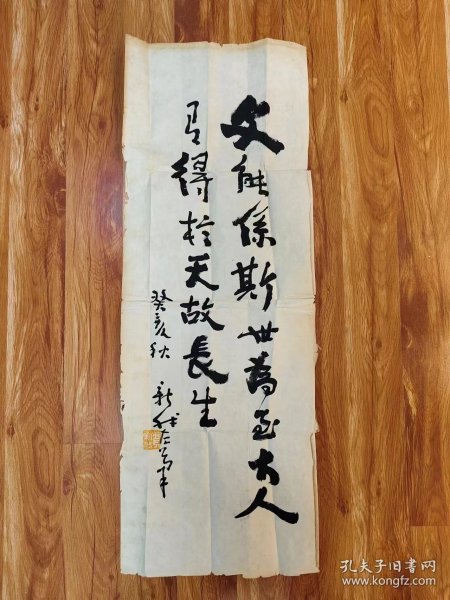 文能係斯世為至大人
有得於天故長生
癸亥秋 新我左筆
孔夫子旧书网
www.kongfz.com